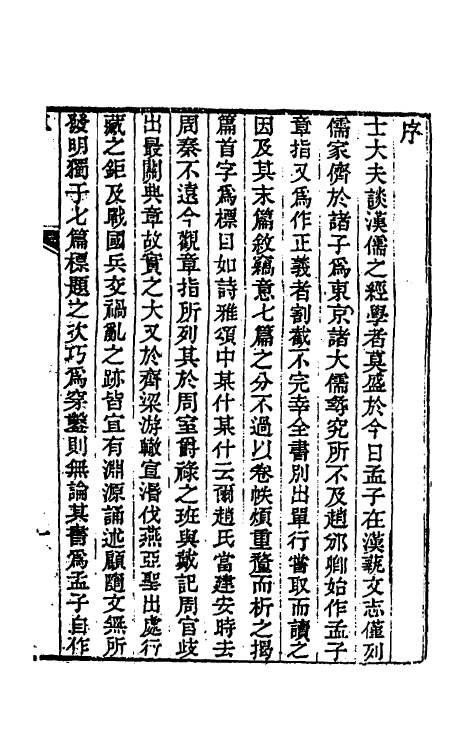 序
士大夫談漢儒之經學者莫盛於今日孟子在漢藝文志僅列
儒家儕於諸子爲東京諸大儒尋究所不及趙邠卿始作孟子
章指又爲作正義者割截不完幸全書別出單行嘗取而讀之
因及其末篇敘竊意七篇之分不過以卷帙煩重釐而析之揭
篇首字爲標目如詩雅頌中某什某什云爾趙氏當建安時去
周秦不遠今觀章指所列其於周室爵祿之班與戴記周官歧
出最關典章故實之大又於齊梁游轍宣湣伐燕亞聖出處行
藏之鉅及戰國兵交禍亂之跡皆宜有淵源誦述顧隨文無所
發明獨于七篇標題之次巧爲穿鑿則無論其書爲孟子自作